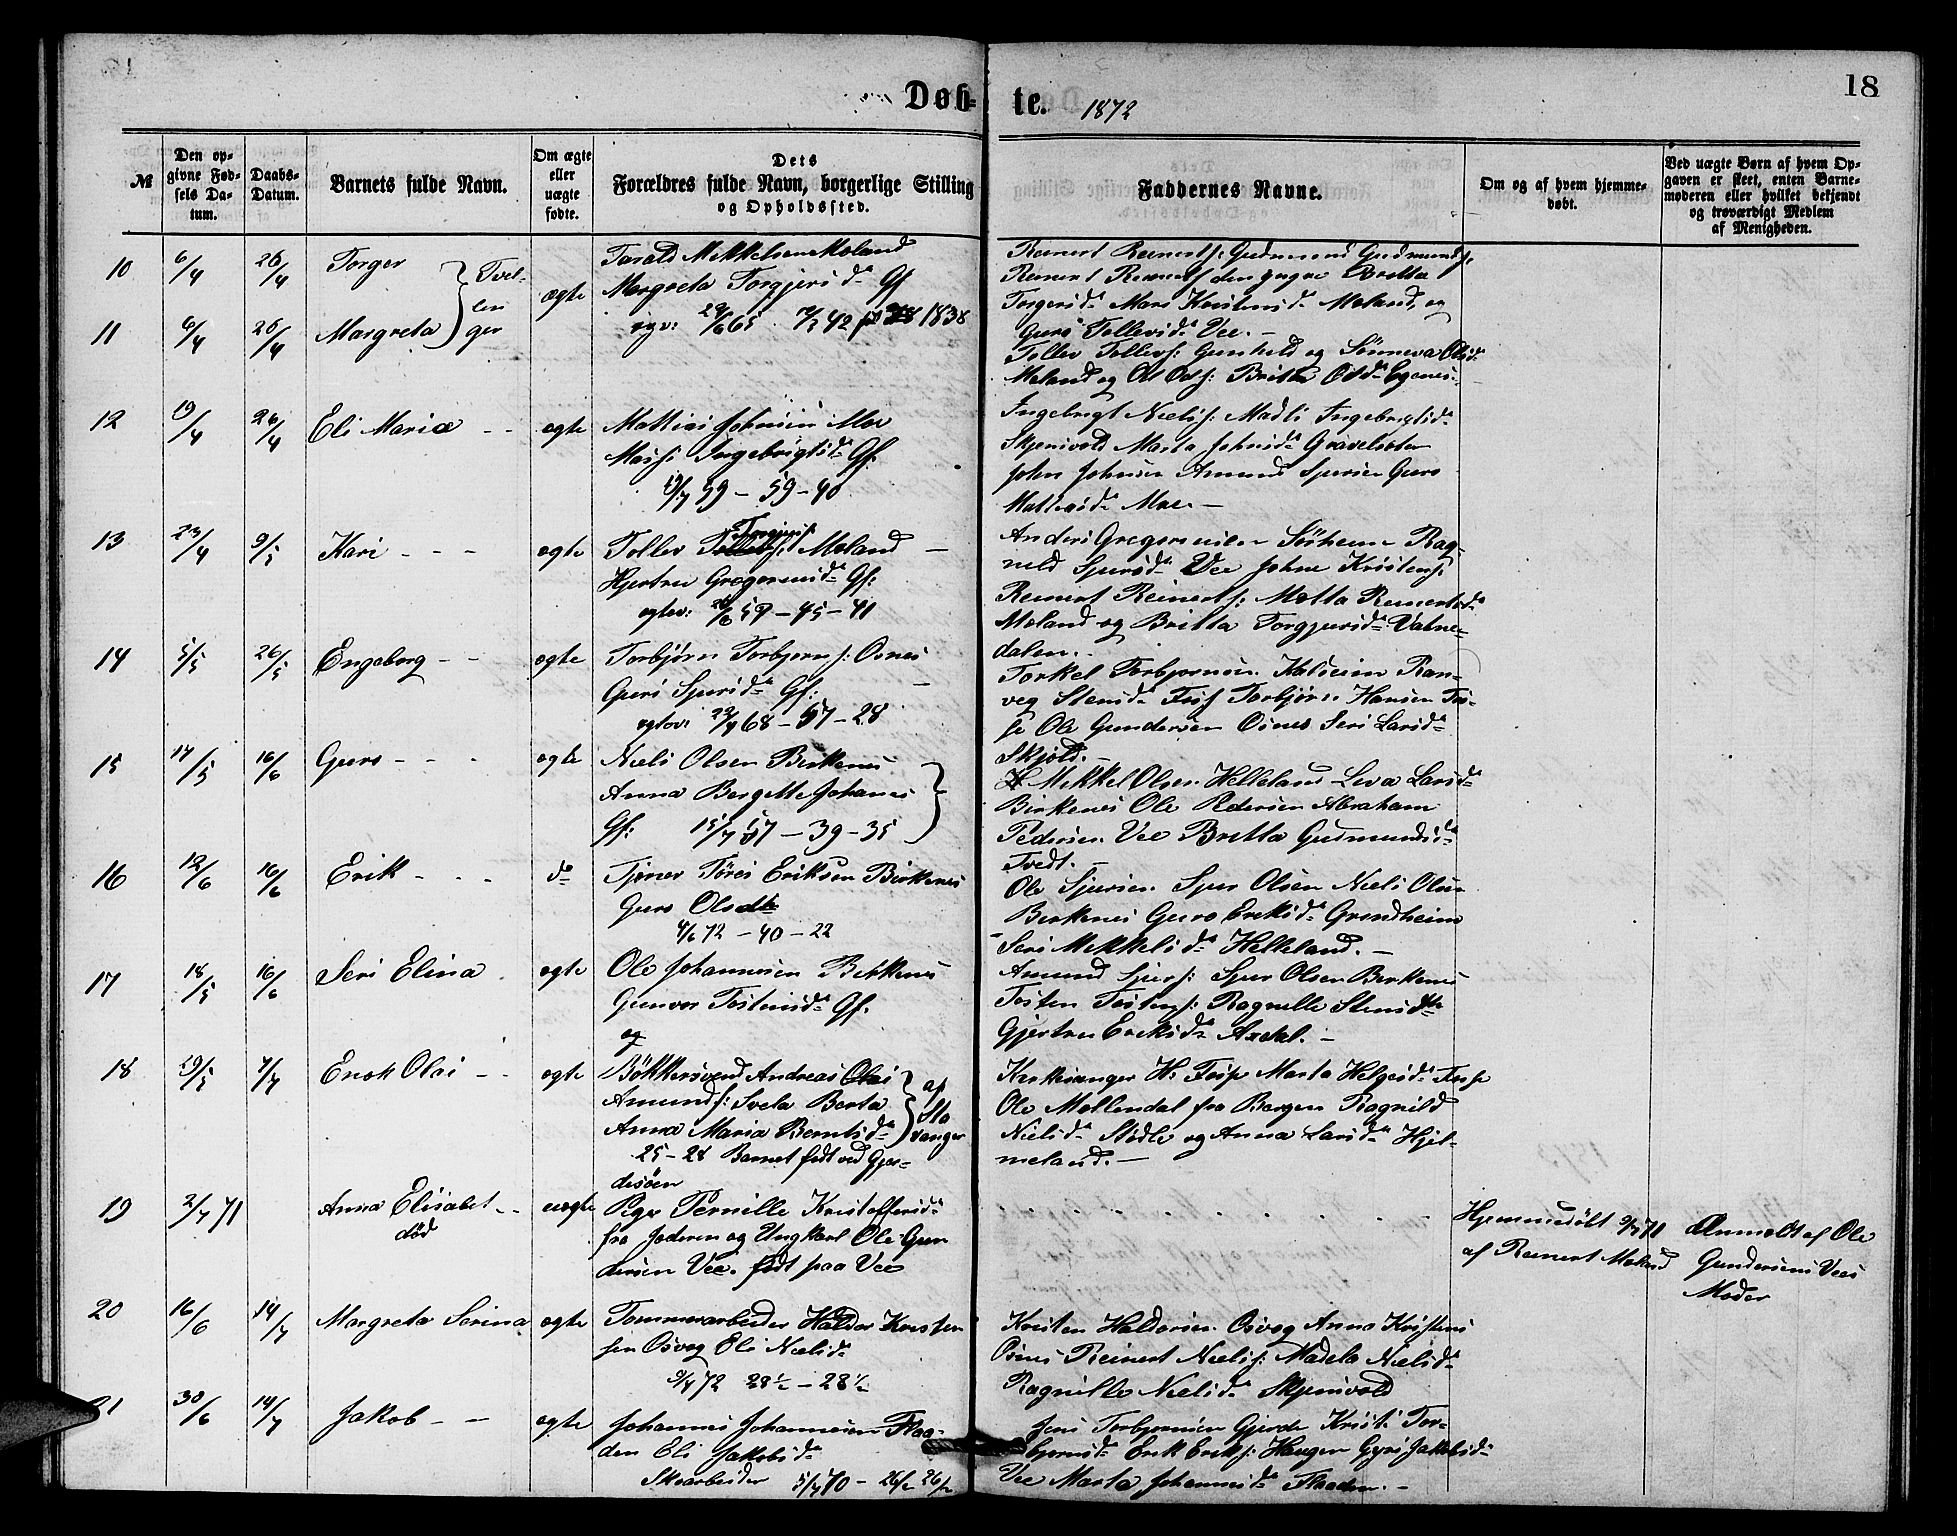 18
Døb-
te. 1872
№
Den op-
givne Fød-
sels Da-
tum.
Daabs-
Datum.
Barnets fulde Navn.
Om ægte
eller
uægte
fødte.
Dets
Forældres fulde Navn, borgerlige Stilling
og Opholdssted.
Faddernes Navne.
Om og af hvem hjemme-
døbt.
Ved uægte Børn af hvem Op-
gaven er skeet, enten Barne-
moderen eller hvilket bekjendt
og troværdigt Medlem
af Menigheden.
10 6/4 26/4 Torger
11 6/4 26/4 Margreta
Tvel-
lin
ger
ægte
Tarald Mikkelsen Moland
Margreta Torgjersd. Gf
1838
Reinert Reinerts: Gudmund Gudmunds:
Reinert Reinerts den yngre Britta
Torgersd. Mari Kristensd. Moland, og
Guro Tollevsd. Vee. –
Tollev Tollevs: Gunhild og Sønneva Olsd.
Moland og Od Ods: Britta Odsd. Egenes.
12 19/4 26/4 Eli Maria - -
ægte
Mattias Johnsen Moe
Ingebrigtsd. Gf.
19/7 59 – 59 – 40
Ingebrigt Niels: Madli Ingebrigtsd.
Skjenivold Marta Johnsd. Gravelsæter
John Johnsen Amund Sjursen Guro
Mattiasd. Moe. –
13 23/4 9/5 Kari - - -
ægte
Tollev Torgjers: Moland –
Hjertru Gregoriusd. Gf:
59 – 45 – 41
Anders Gregoriusen Søsheim Rag-
nild Sjursd. Vee John Kristens:
Reinert Reinerts: Metta Reinertsd.
Moland og Britta Torgjersd. Vatne-
dalen. –
14 5/5 26/5 Engeborg - -
ægte
Torbjørn Torbjørns: Osnes
Guri Sjursd. Gf: –
68 – 57 – 28
Torkel Torbjørnsen Ran-
veg Stensd. Fosse Torbjørn Hansen Fos-
se Ole Gundersen Osnes Seri Larsd.
Skjold. –
15 14/5 16/6 Guro - - -
ægte
Niels Olsen Birkenes
Anna Bergitte Johanes
Gf: 15/7 57 – 39 – 35
Mikkel Olsen Helleland Leva Larsd.
Birkenes Ole Pedersen Abraham
Pedersen Vee Britta Gudmundsd.
Tvedt. –
16 12/6 16/6 Erik - - -
do
Tjener Tøres Eriksen Birkenes
Guro Olsdtr
4/6 72 – 40 – 22
Ole Sjursen Sjur Olsen Niels Olsen
Birkenes Guro Eriksd. Grindheim
Seri Mikkelsd. Helleland. –
17 18/5 16/6 Seri Elina
ægte
Ole Johannesen Birkenes
Gunvor Tostensd. Gf.
og
Amund Sjurs: Sjur Olsen Birkenes
Tosten Tostens: Ragnille Stensdtr
Gjertru Eriksd. Axdal. –
18 29/5 7/7 Enok Olai - -
ægte
Bøkkersvend Andreas Olai
Amunds: Sveta Berta
Anna Maria Berntsd.
af
Sta
vanger
25 – 28 Barnet født ved Gjer-
desøen
Kirkesanger H. Fosse Marta Helgesd. Fosse
Ole Møllendal fra Bergen Ragnild
Nielsd. Stødle og Anna Larsd. Hjel-
meland. –
19 2/7 71 Anna Elisabet - -
død
uægte
Pige Pernille Kristoffersd.
fra Jæderen og Ungkarl Ole Gun
dersen Vee. født paa Vee
Hjemmedøbt 9/7 71
af Reinert Moland
Anmeldt af Ole
Gundersens Vees
Moder
20 16/6 14/7 Margreta Serina
ægte
Tømmerarbeider Haldor Kristen
sen Osvog Eli Nielsd.
72 28½ – 28½
Kristen Haldorsen Osvog Anna Kristens
Osnes Reinert Niels: Madela Nielsd.
Ragnille Nielsd. Skjenivold
21 30/6 14/7 Jakob - –
ægte
Johannes Johannesen Flaa-
den Eli Jakobsd.
Skoarbeider 5/7 70 – 26½ 26½
Jens Torbjørnsen Gjerde Kristi Tor-
bjørnsd. Erik Eriks: Haugen Gyri Jakobsd.
Vee Marta Johannesd. Flaaden. –